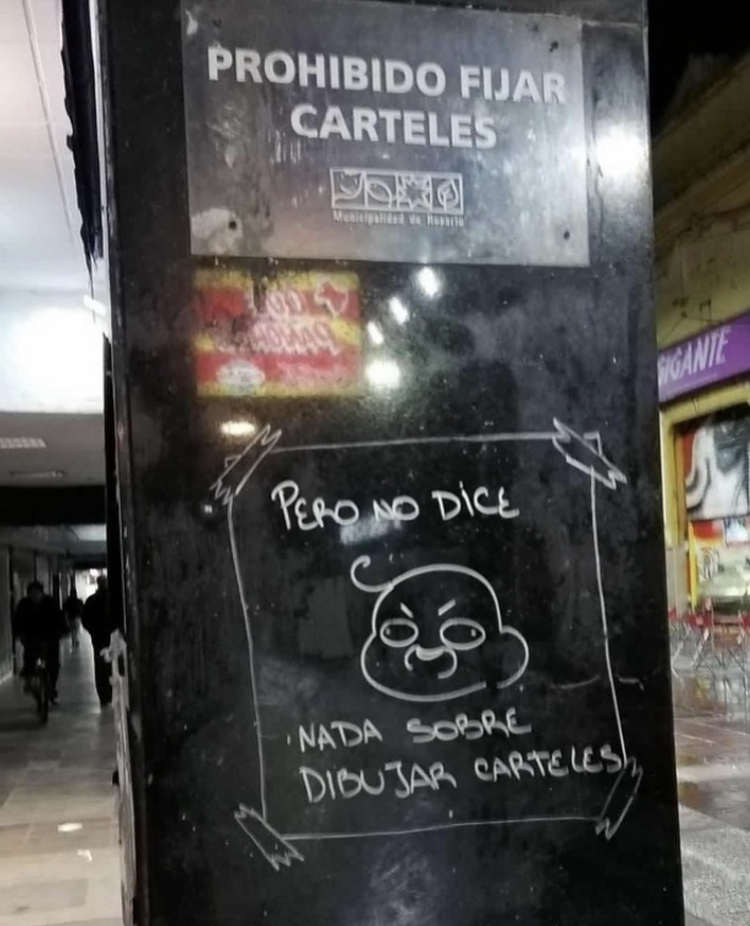 PROHIBIDO FIJAR
CARTELES
Municipalidad de Rosario
GIGANTE
PERO NO DICE
NADA SOBRE
DIBUJAR CARTELES